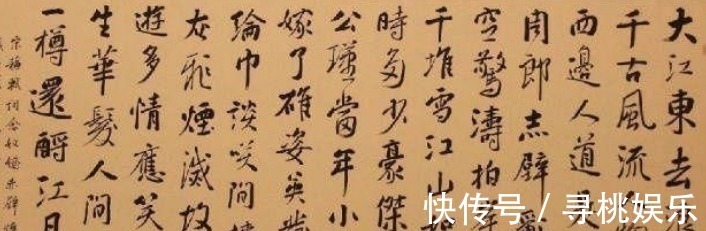 大江東去
千古風流
西邊人道
周郎赤壁
空驚濤拍岸
千堆雪江山
時多少豪傑
公瑾當年小
嫁了雄姿英發
綸巾談笑間
灰飛煙滅故
遊多情應笑
生華髮人間
一樽還酹江月
宋蘇軾詞念奴嬌赤壁懷
快传号 / 寻桃娱乐